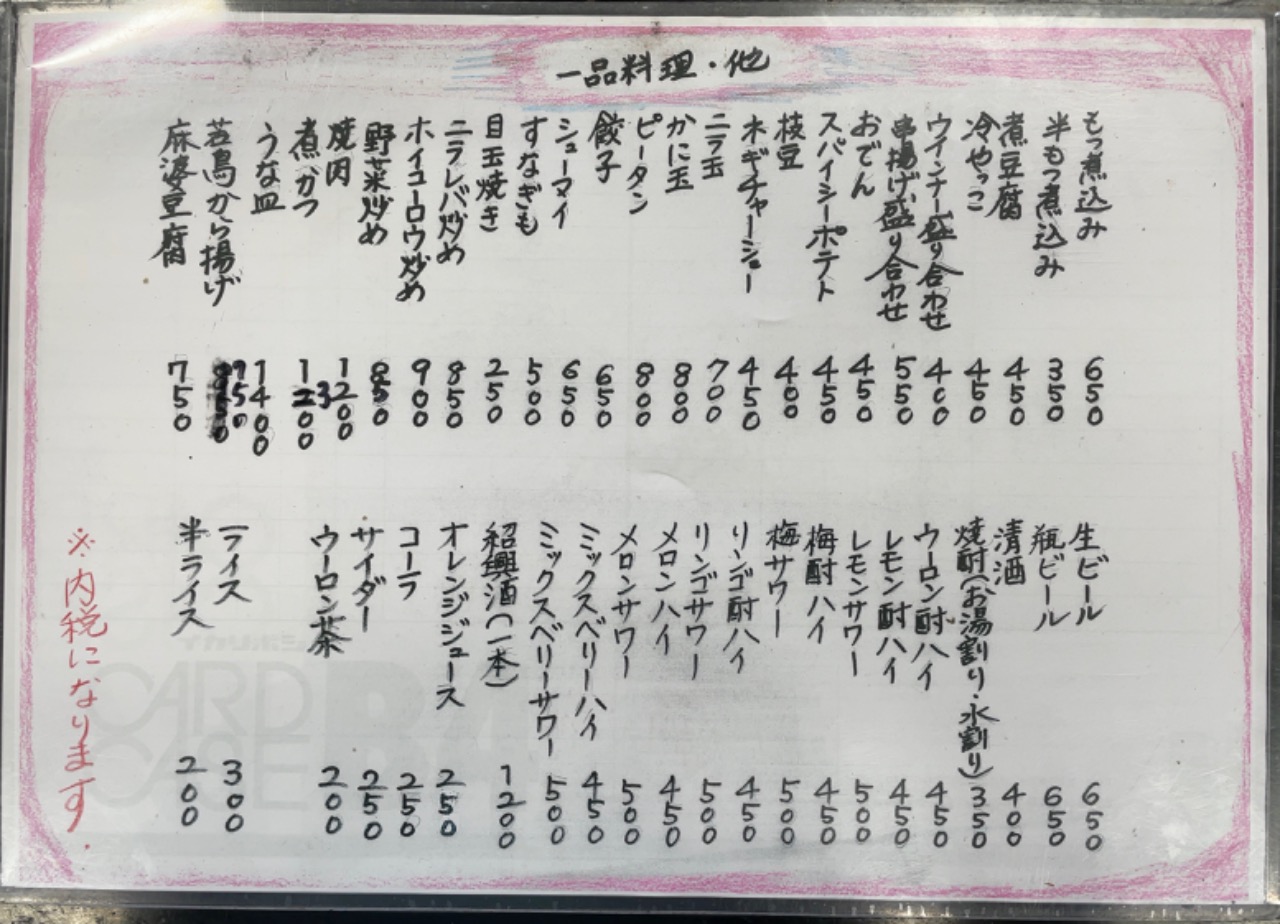 一品料理・他
もつ煮込み 650
半もつ煮込み 350
煮豆腐 450
冷やっこ 450
ウインナー盛り合わせ 400
串揚げ盛り合わせ 550
おでん 450
スパイシーポテト 450
枝豆 400
ネギチャーシュー 450
ニラ玉 700
かに玉 800
ピータン 800
餃子 650
シューマイ 650
すなぎも 500
目玉焼き 250
ニラレバ炒め 850
ホイコーロウ炒め 900
野菜炒め 850
焼肉 1200
煮かつ 1300
うな皿 1400
若鳥から揚げ 950
麻婆豆腐 750
生ビール 650
瓶ビール 650
清酒 400
焼酎(お湯割り・水割り) 350
ウーロン酎ハイ 450
レモン酎ハイ 450
レモンサワー 500
梅酎ハイ 450
梅サワー 500
リンゴ酎ハイ 450
リンゴサワー 500
メロンハイ 450
メロンサワー 500
ミックスベリーハイ 450
ミックスベリーサワー 500
紹興酒(一本) 1200
オレンジジュース 250
コーラ 250
サイダー 250
ウーロン茶 200
ライス 300
半ライス 200
※内税になります.
CARD
CASE B4